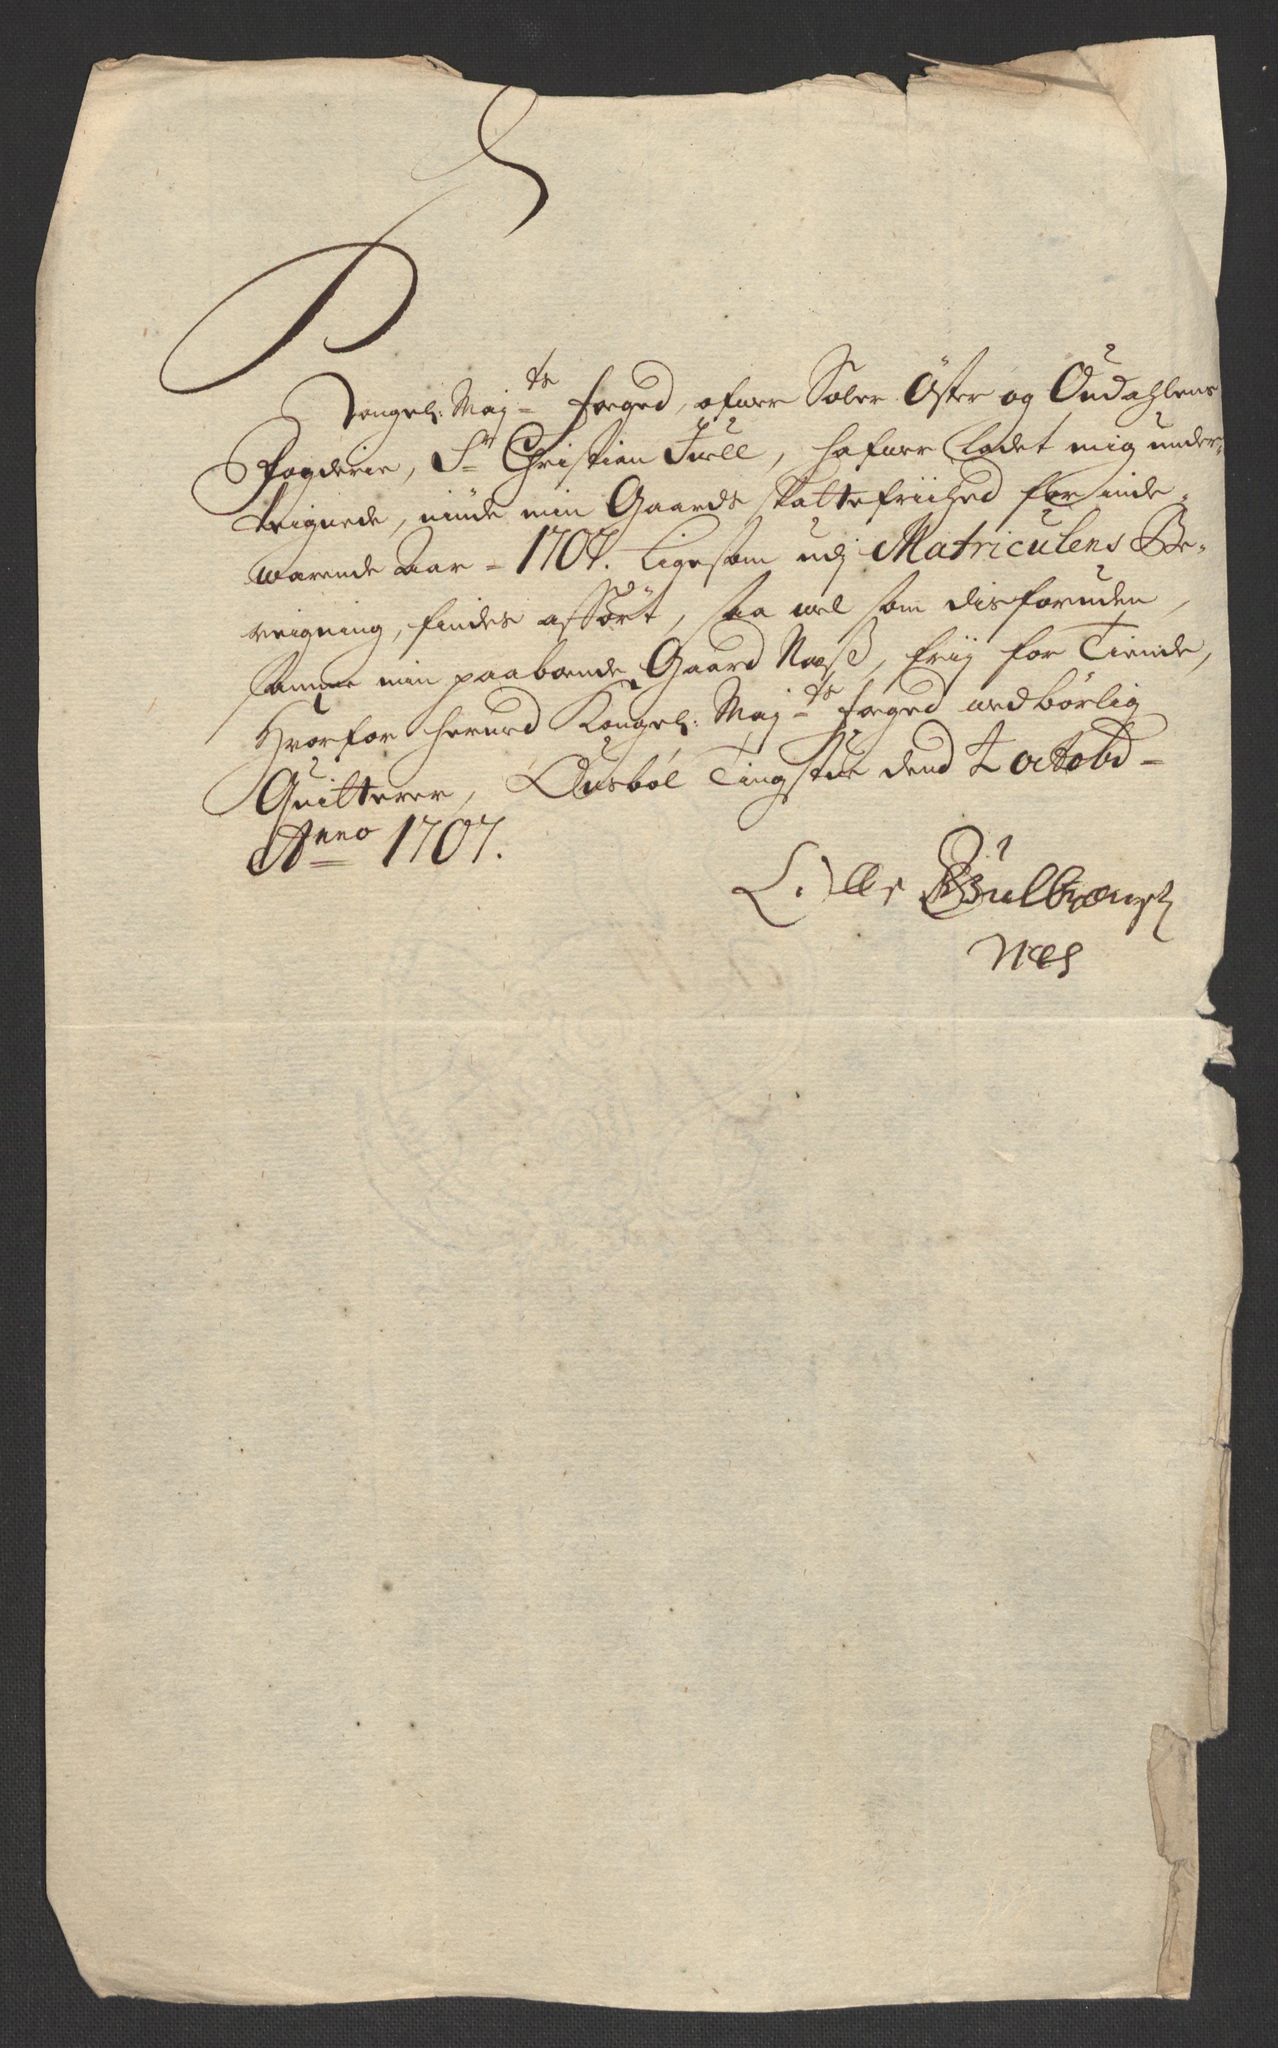 Kongel: Maj:ts foeged, ofwer Soler Öster og Oudahlens
Fogderie, Sr Christian Juell, hafwer ladet mig under-
teignede, niude min Gaards skattefriihed for inde-
warende Aar - 1707. Ligesom udj Matriculens Be-
reigning, findes afført, saa wel som disforuden,
samme min paaboende Gaard Næss, frij for Tiende,
Hvorfor herued Kongel: Maj:ts foged wedbörlig
Quitterer, Ousböl Tingstue dend 2 octobr -
Anno 1707.
Gulbransen
Næs